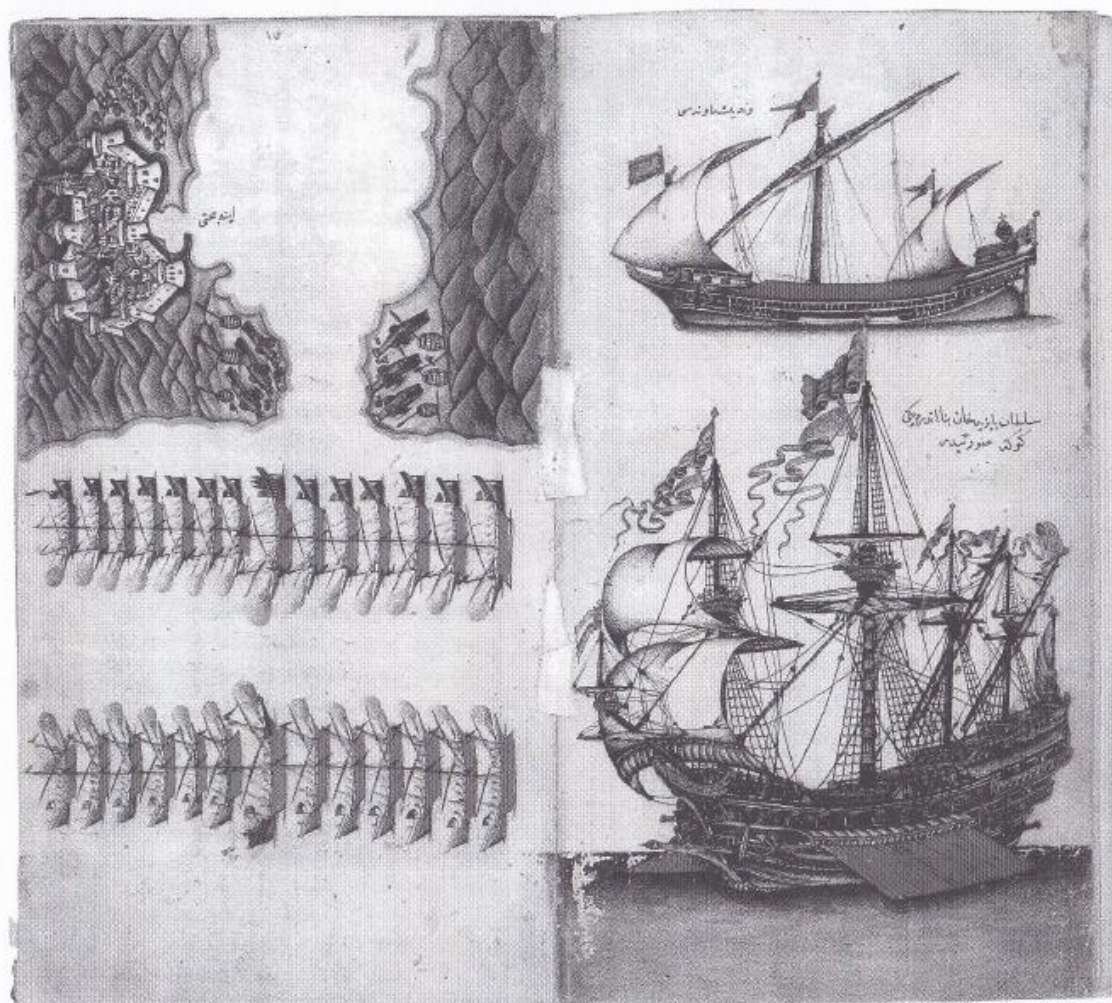 ١٥
اینه بختی
وندیك ماونه سی
سلطان بایزید خان بنا اتدردیکی
کوکه صورتیدر